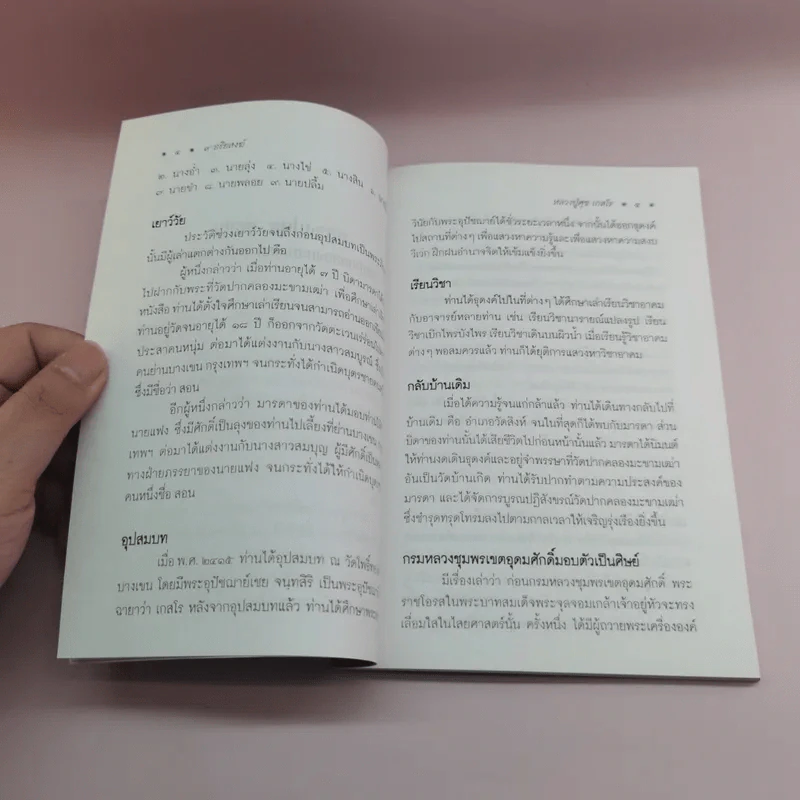 ๙ อริยสงฆ์
๒. นางอ่ำ ๓. นายลุ่ง ๔. นางไข่ ๕. นางสิน
๗. นายขำ ๘. นายพลอย ๙. นายปลื้ม
เยาว์วัย
ประวัติช่วงเยาว์วัยจนถึงก่อนอุปสมบทเป็น
นั้นมีผู้เล่าแตกต่างกันออกไป คือ
ผู้หนึ่งกล่าวว่า เมื่อท่านอายุได้ ๗ ปี บิดามารดา
ไปฝากกับพระที่วัดปากคลองมะขามเฒ่า เพื่อศึกษา
หนังสือ ท่านได้ตั้งใจศึกษาเล่าเรียนจนสามารถอ่านออก
ท่านอยู่วัดจนอายุได้ ๑๘ ปี ก็ออกจากวัดตะเวนเร่ร่อน
ประสาคนหนุ่ม ต่อมาได้แต่งงานกับนางสาวสมบูรณ์
คนย่านบางเขน กรุงเทพฯ จนกระทั่งได้กำเนิดบุตรชาย
ซึ่งมีชื่อว่า สอน
อีกผู้หนึ่งกล่าวว่า มารดาของท่านได้มอบท่าน
นายแฟง ซึ่งมีศักดิ์เป็นลุงของท่านไปเลี้ยงที่ย่านบางเขน
เทพฯ ต่อมาได้แต่งงานกับนางสาวสมบุญ ผู้มีศักดิ์เป็น
ทางฝ่ายภรรยาของนายแฟง จนกระทั่งได้ให้กำเนิดบุตร
คนหนึ่งชื่อ สอน
อุปสมบท
เมื่อ พ.ศ. ๒๔๑๕ ท่านได้อุปสมบท ณ วัดโพธิ์
บางเขน โดยมีพระอุปัชฌาย์เชย จนฺทสิริ เป็นพระอุปัชฌาย์
ฉายาว่า เกสโร หลังจากอุปสมบทแล้ว ท่านได้ศึกษา
หลวงปู่ศุข เกสโร
วินัยกับพระอุปัชฌาย์ได้ชั่วระยะเวลาหนึ่ง จากนั้นได้ออกธุดงค์
ไปสถานที่ต่างๆ เพื่อแสวงหาความรู้และเพื่อแสวงหาความสงบ
วิเวก ฝึกฝนอำนาจจิตให้เข้มแข็งยิ่งขึ้น
เรียนวิชา
ท่านได้ธุดงค์ไปในที่ต่างๆ ได้ศึกษาเล่าเรียนวิชาอาคม
กับอาจารย์หลายท่าน เช่น เรียนวิชานารายณ์แปลงรูป เรียน
วิชาเบิกไพรบังไพร เรียนวิชาเดินบนผิวน้ำ เมื่อเรียนรู้วิชาอาคม
ต่างๆ พอสมควรแล้ว ท่านก็ได้ยุติการแสวงหาวิชาอาคม
กลับบ้านเดิม
เมื่อได้ความรู้จนแก่กล้าแล้ว ท่านได้เดินทางกลับไปที่
บ้านเดิม คือ อำเภอวัดสิงห์ จนในที่สุดก็ได้พบกับมารดา ส่วน
บิดาของท่านนั้นได้เสียชีวิตไปก่อนหน้านั้นแล้ว มารดาได้นิมนต์
ให้ท่านงดเดินธุดงค์และอยู่จำพรรษาที่วัดปากคลองมะขามเฒ่า
อันเป็นวัดบ้านเกิด ท่านได้รับปากทำตามความประสงค์ของ
มารดา และได้จัดการบูรณปฏิสังขรณ์วัดปากคลองมะขามเฒ่า
ซึ่งชำรุดทรุดโทรมลงไปตามกาลเวลาให้เจริญรุ่งเรืองยิ่งขึ้น
กรมหลวงชุมพรเขตอุดมศักดิ์มอบตัวเป็นศิษย์
มีเรื่องเล่าว่า ก่อนกรมหลวงชุมพรเขตอุดมศักดิ์ พระ
ราชโอรสในพระบาทสมเด็จพระจุลจอมเกล้าเจ้าอยู่หัวจะทรง
เลื่อมใสในไสยศาสตร์นั้น ครั้งหนึ่ง ได้มีผู้ถวายพระเครื่ององค์